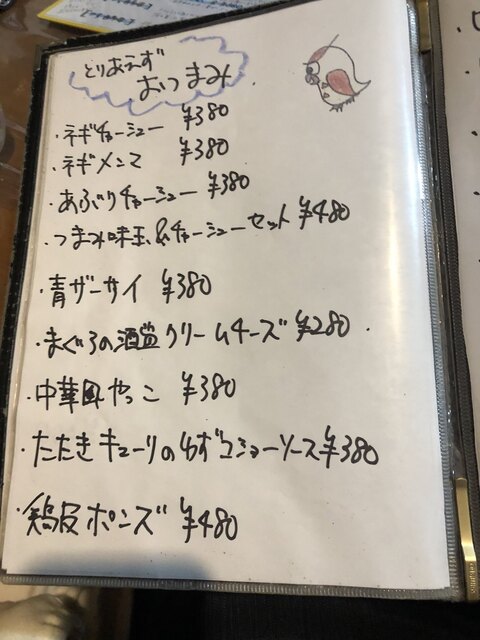 とりあえず
おつまみ
・ネギチャーシュー ¥380
・ネギメンマ ¥380
・あぶりチャーシュー ¥380
・つまみ味玉&チャーシューセット ¥480
・青ザーサイ ¥380
・まぐろの酒盗クリームチーズ ¥280
・中華風やっこ ¥380
・たたきキューリのゆずコショーソース ¥380
・鶏皮ポンズ ¥480